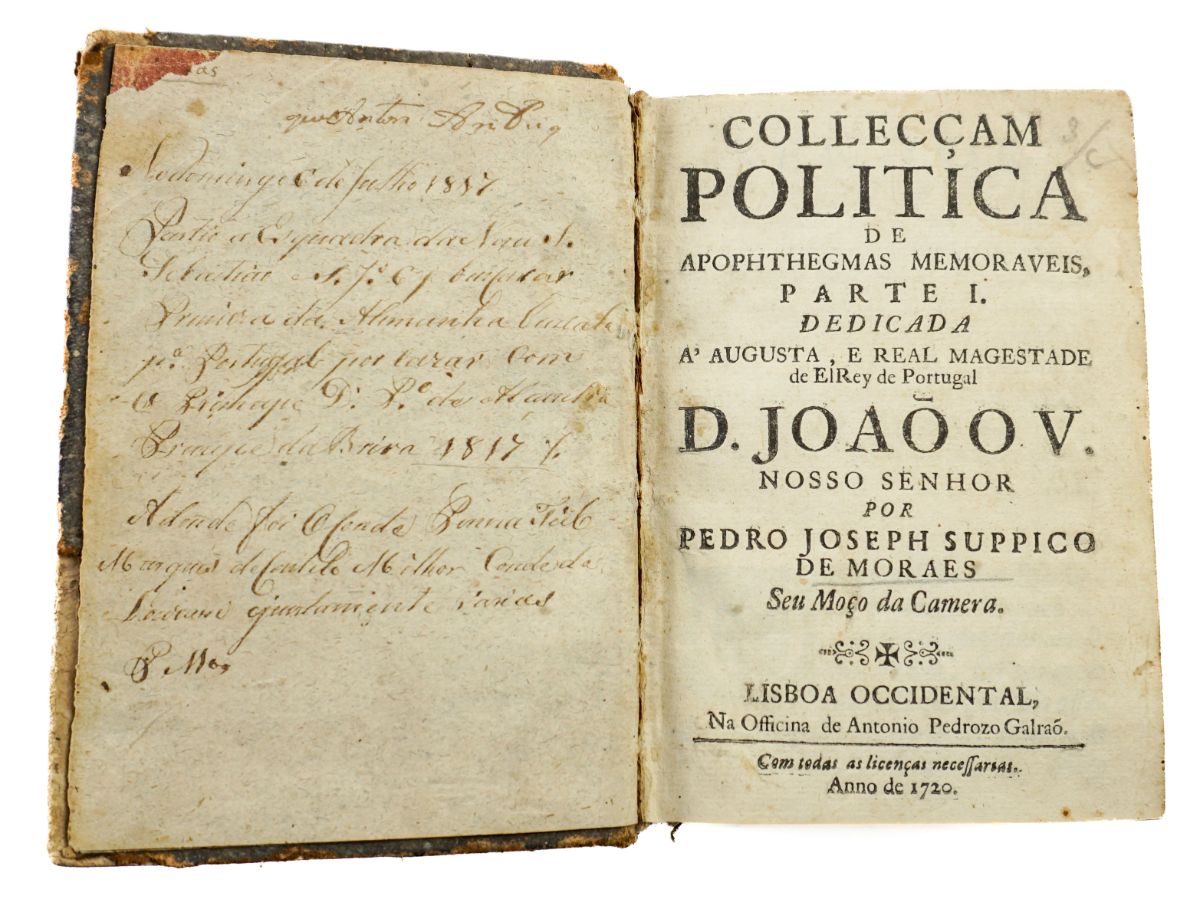 as
No domingo 6 de Julho 1817
Partio a Esquadra da Nau S.
Sebastiao buscar
da Alimanha
pª Portugal por cazar com
O Principe D. Pº de
Principe da 1817
Adonde foi O Conde
Marques de Milhor Conde da
juntamente varias
P Mes
COLLECÇAM
POLITICA
DE
APOPHTHEGMAS MEMORAVEIS,
PARTE I.
DEDICADA
A' AUGUSTA, E REAL MAGESTADE
de ElRey de Portugal
D. JOAÕ O V.
NOSSO SENHOR
POR
PEDRO JOSEPH SUPPICO
DE MORAES
Seu Moço da Camera.
LISBOA OCCIDENTAL,
Na Officina de Antonio Pedrozo Galraõ.
Com todas as licenças necessarias.
Anno de 1720.